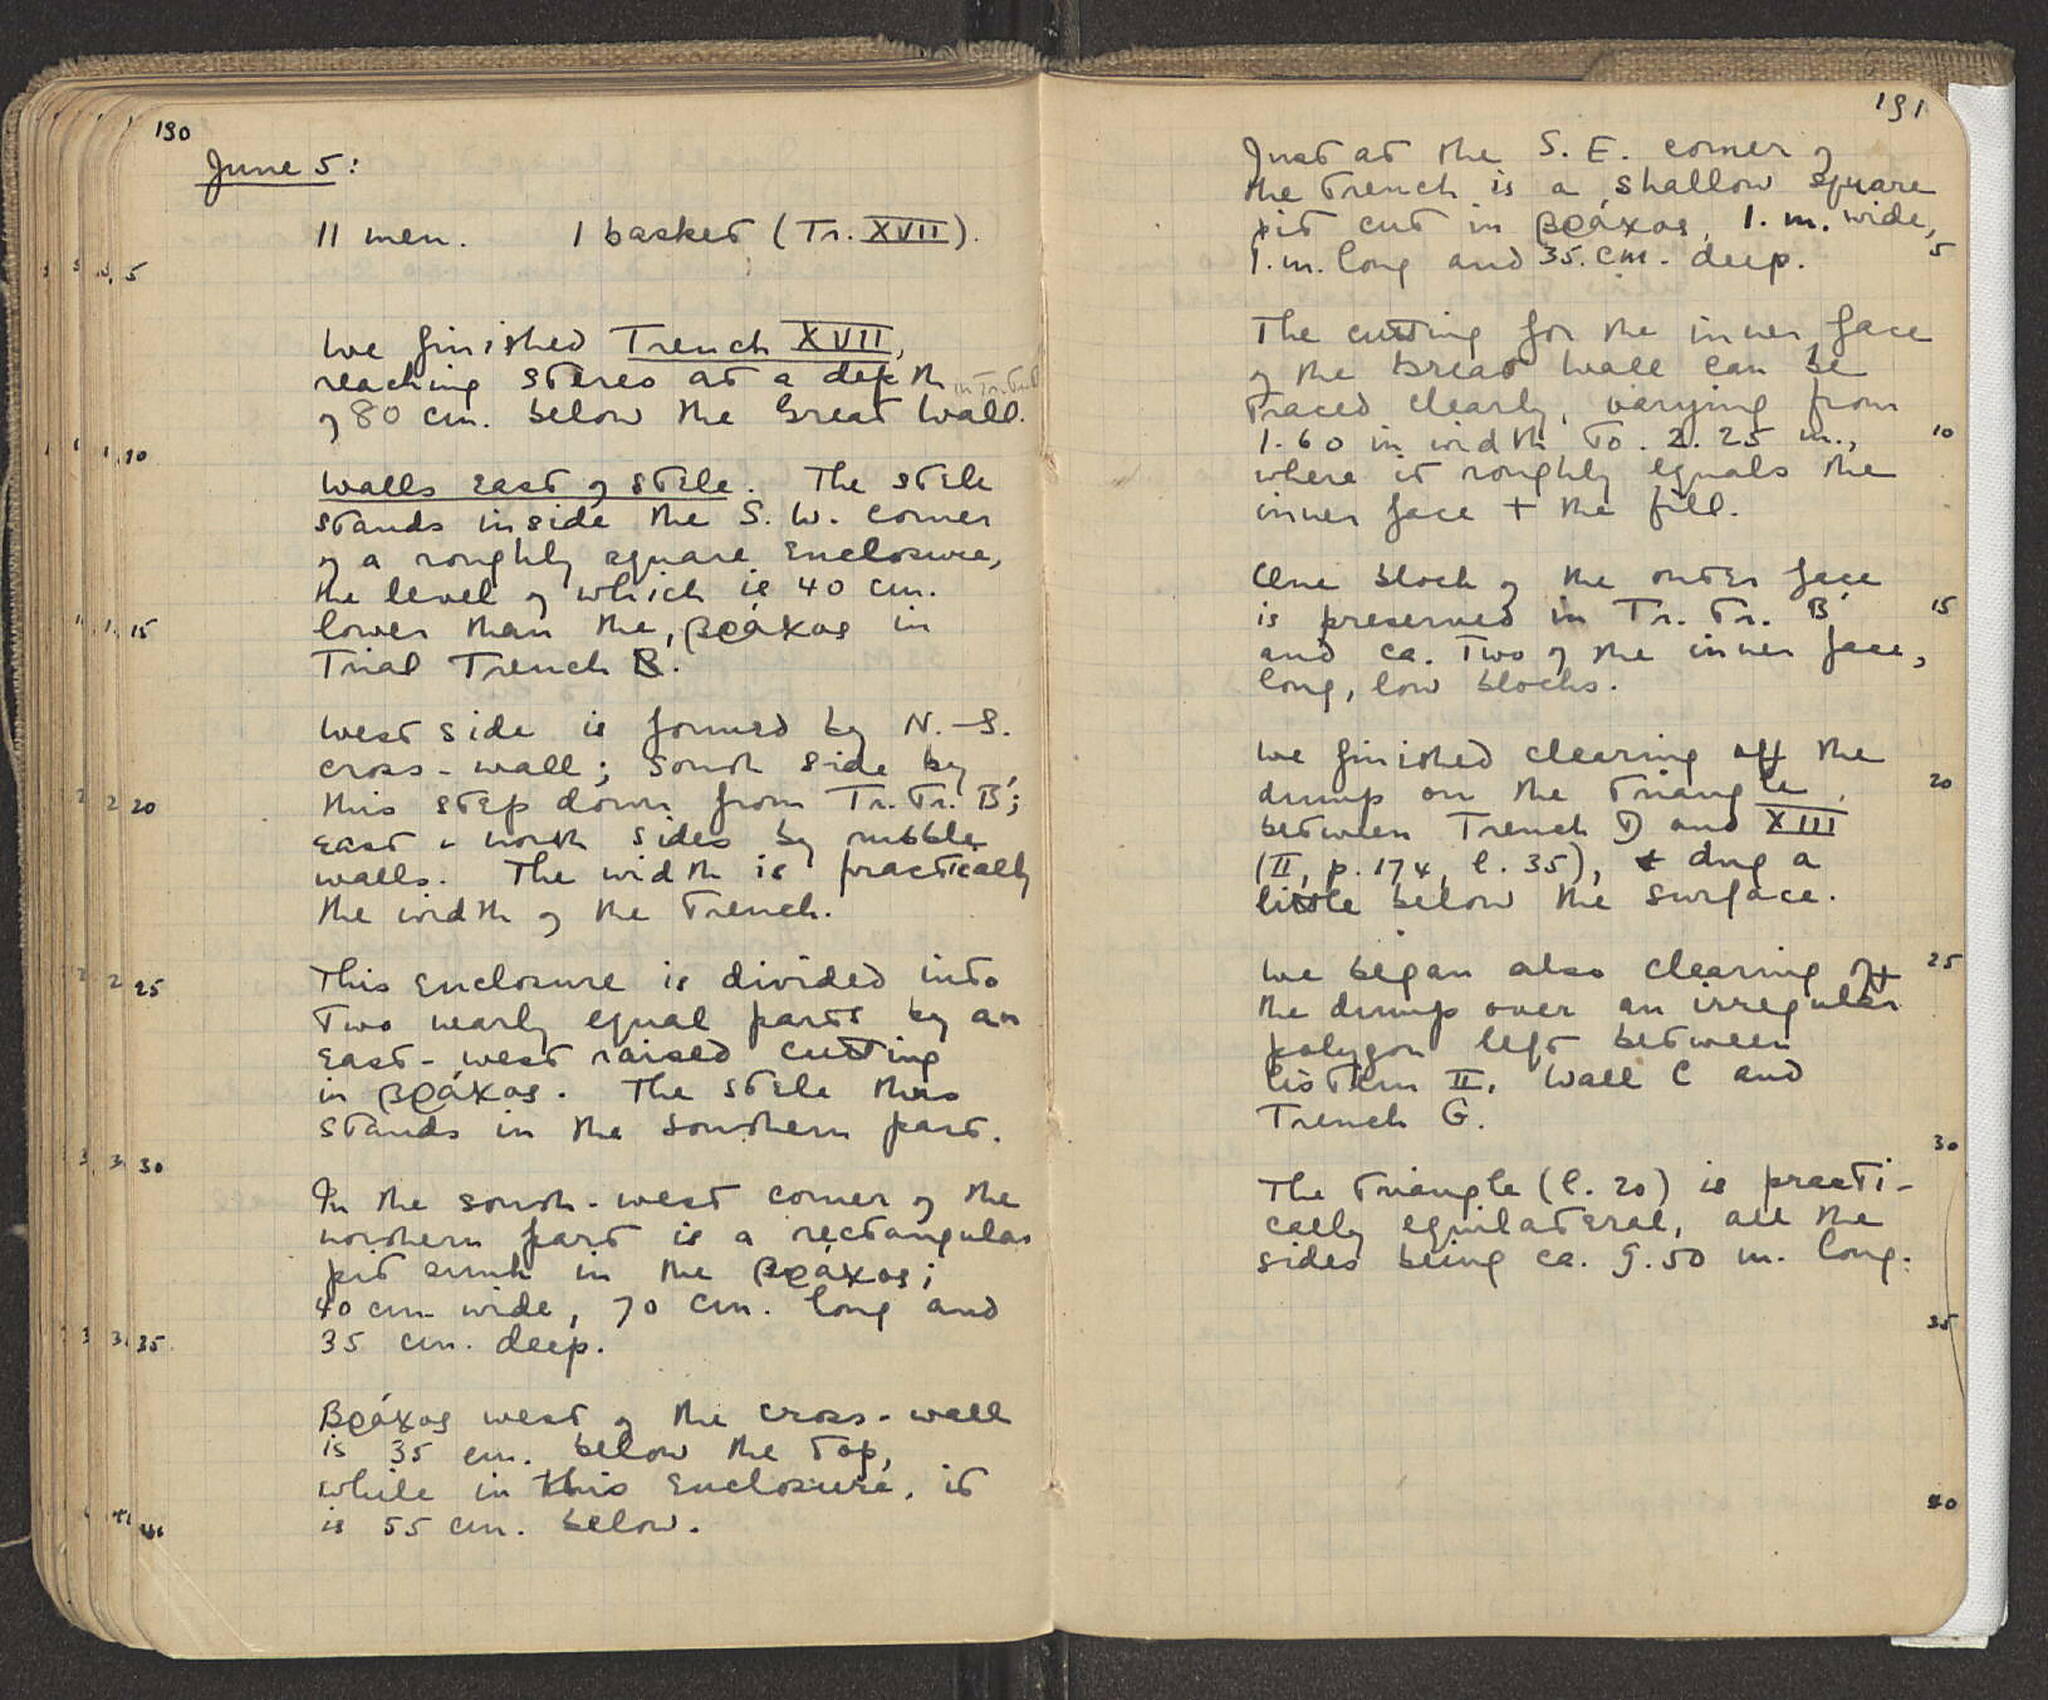 190
June 5:
11 men. 1 basket (Tr. XVII).
5
We finished Trench XVII,
reaching stereo at a depth
of 80 cm. below the Great Wall.
10
Walls East of Stele. The stele
stands inside the S. W. corner
of a roughly square enclosure,
the level of which is 40 cm.
lower than the βράχος in
15
Trial Trench B.
West side is formed by N.-S.
cross-wall; south side by
this step down from Tr. Tr. B';
20
East & north sides by rubble
walls. The width is practically
the width of the Trench.
This enclosure is divided into
25
two nearly equal parts by an
East-west raised cutting
in βράχος. The stele thus
stands in the southern part.
30
In the south-west corner of the
northern part is a rectangular
pit sunk in the βράχος;
40 cm wide, 70 cm. long and
35 cm. deep.
35
Βράχος west of the cross-wall
is 35 cm. below the top,
while in this enclosure, it
is 55 cm. below.
191
Just at the S. E. corner of
the trench is a shallow square
pit cut in βράχος, 1. m. wide,
1. m. long and 35. cm. deep.
5
The cutting for the inner face
of the Great Wall can be
traced clearly, varying from
1.60 in width to. 2.25 m.,
10
where it roughly equals the
inner face + the fill.
One block of the outer face
is preserved in Tr. Tr. B'
15
and ca. two of the inner face,
long, low blocks.
We finished clearing off the
dump on the triangle
20
between Trench D and XIII
(II, p. 174, l. 35), & dug a
little below the surface.
We began also clearing off
25
the dump over an irregular
polygon left between
Cistern II, Wall C and
Trench G.
30
The triangle (l. 20) is practi-
cally equilateral, all the
sides being ca. 9.50 m. long.
35
40